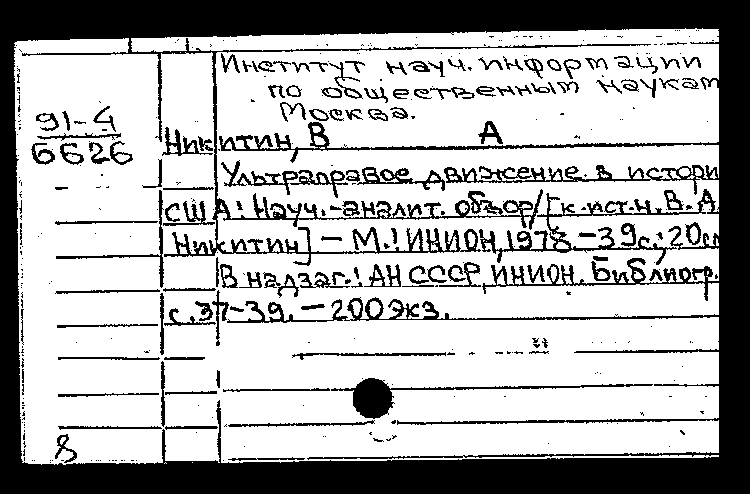 Институт науч. информации
по общественным наукам
Москва.
91-4
6626
Никитин, В А
Ультраправое движение в истори
США: Науч.-аналит. обзор/[к.ист.н. В.А.
Никитин] – М.: ИНИОН, 1978. – 39с.; 20см
В надзаг.: АН СССР, ИНИОН. Библиогр.
с.37-39. – 200 экз.
8